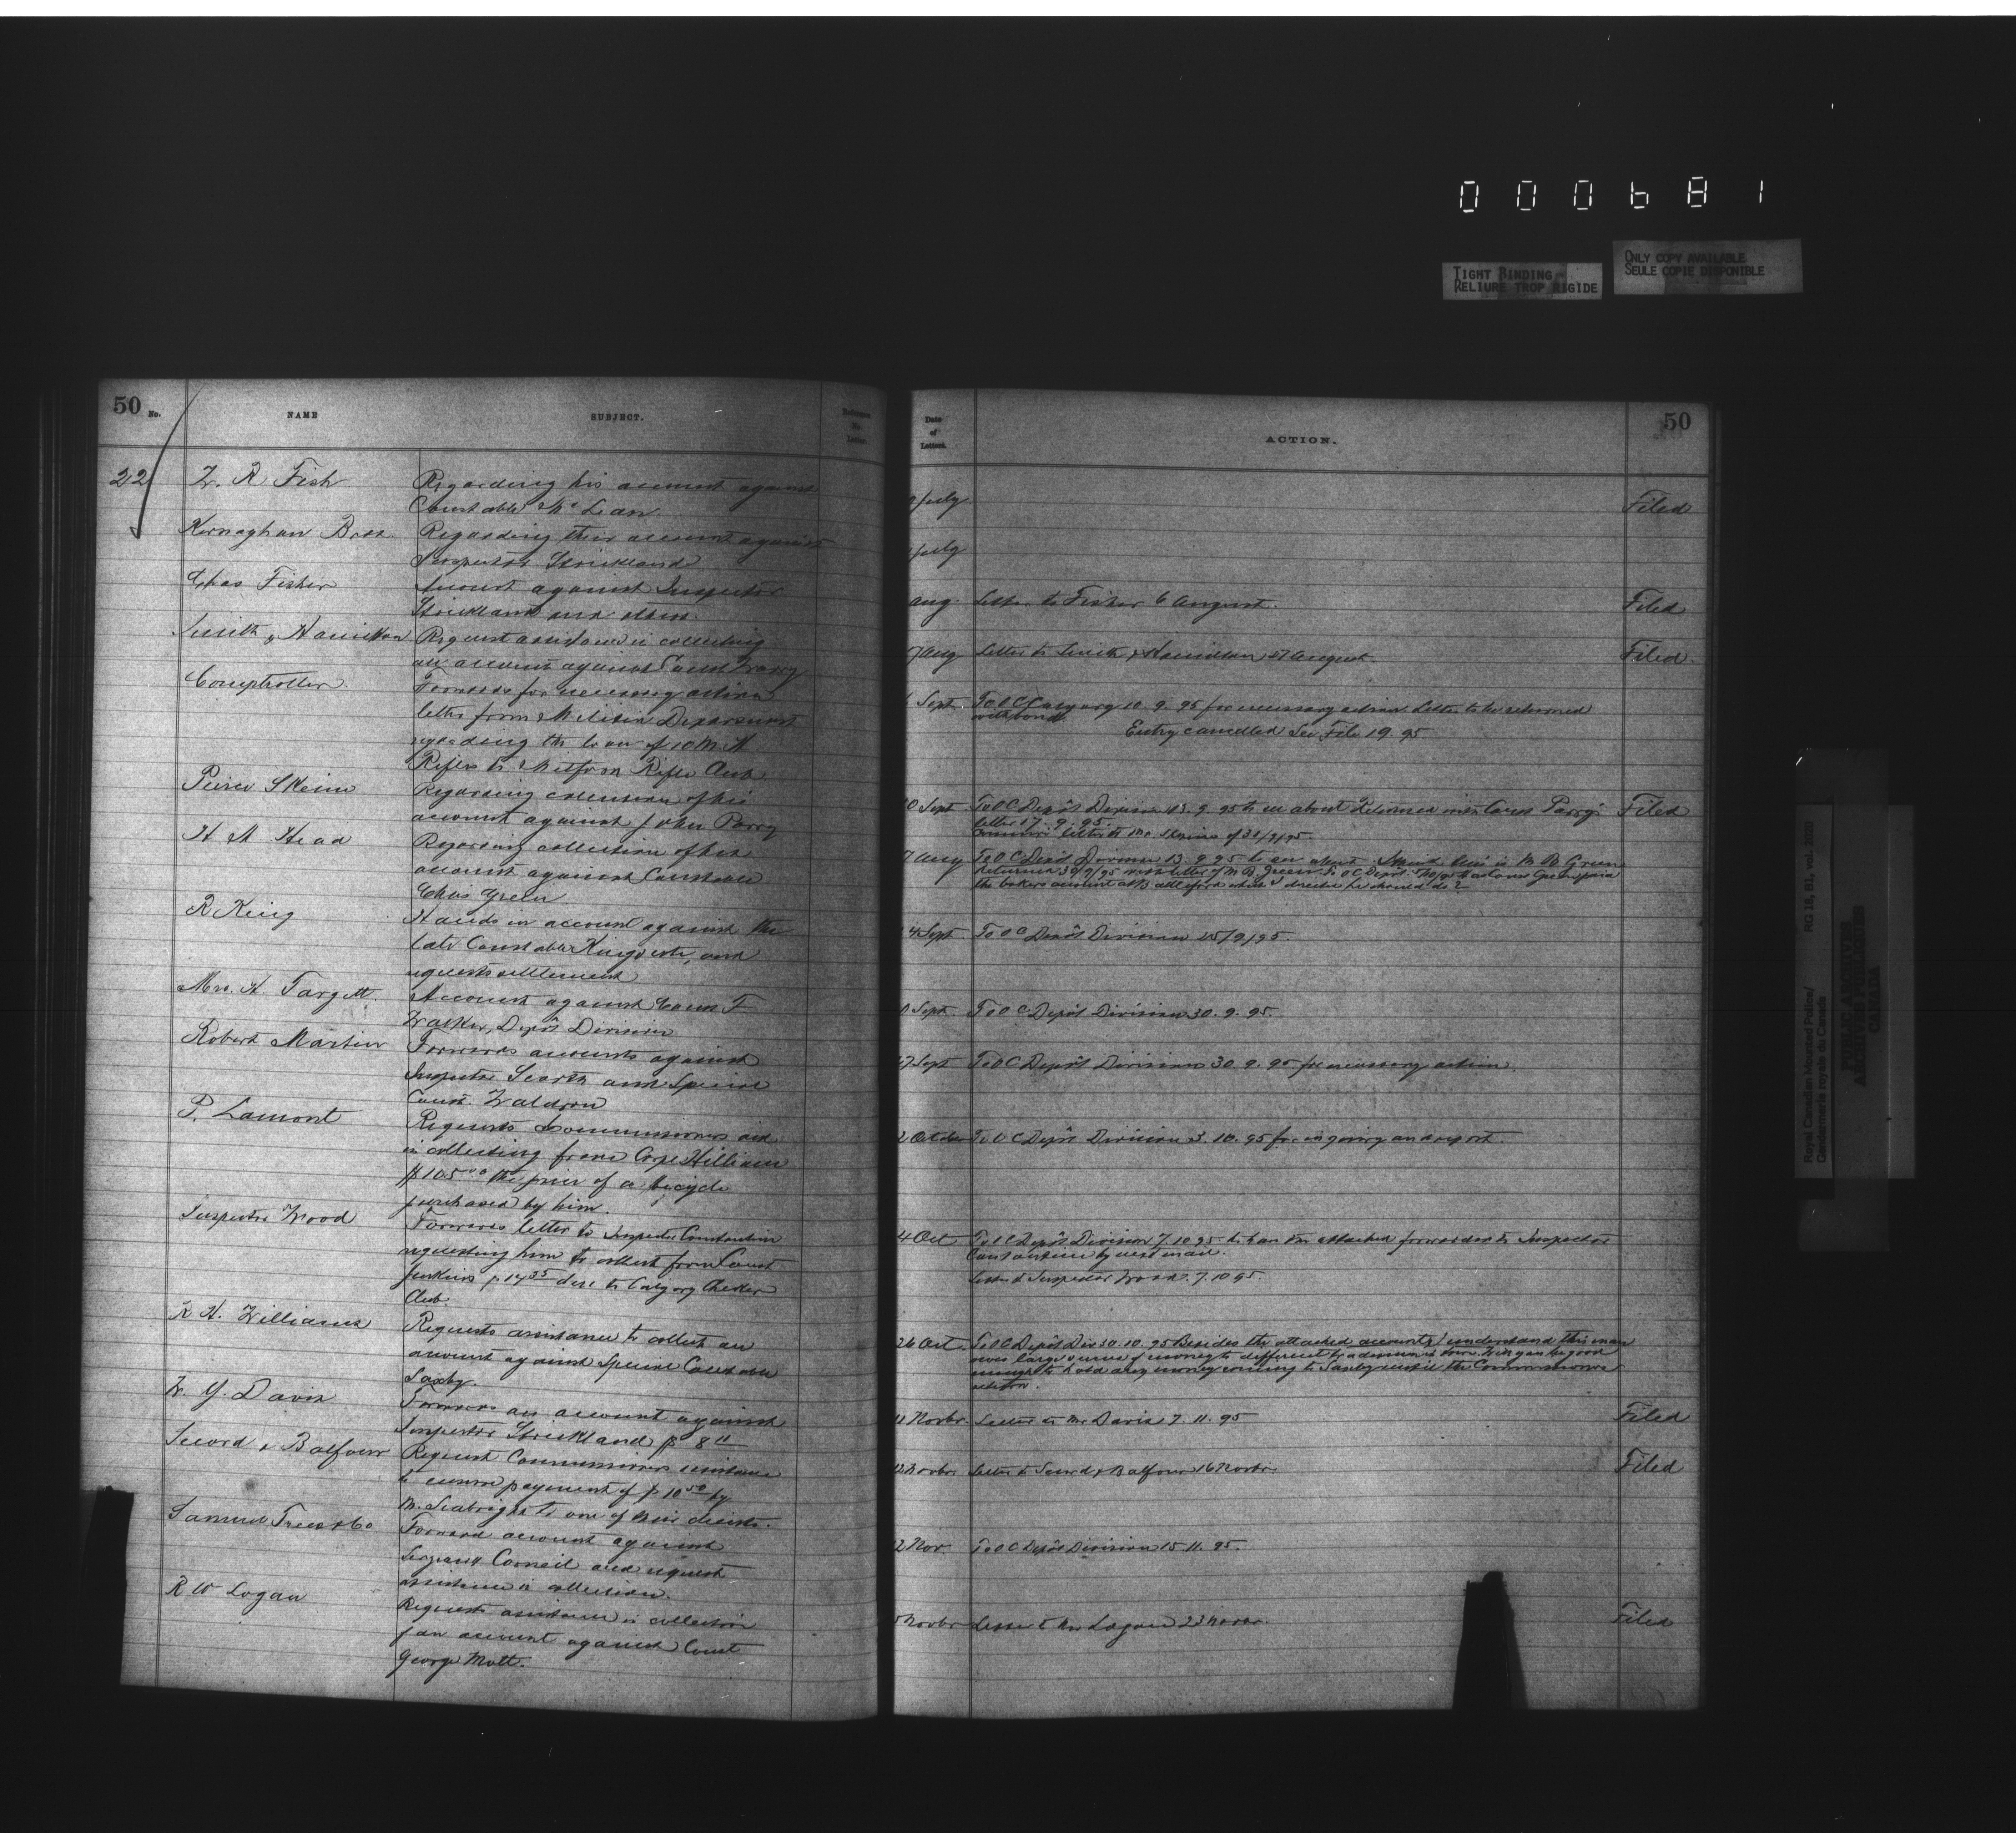 000681
TIGHT BINDING
RELIURE TROP RIGIDE
ONLY COPY AVAILABLE
SEULE COPIE DISPONIBLE
50 No.
NAME
SUBJECT.
Reference No. Letter
22
W. R Fish
Regarding his account against
Constable McLean
Kernaghan Bros.
Regarding their account against
Inspector Strickland
Chas Fisher
Account against Inspector
Strickland and others.
Smith & Hamilton
Request assistance in collecting
an account against Const Warry
Comptroller
Forwards for necessary action
letter from Militia Department
regarding the loan of 10 M. H
Rifles to Mitford Rifle Club
Peirce Skeine
Regarding collection of his
account against John Parry
H M Head
Regarding collection of her
account against Constable
Chas Green
R King
Hands in account against the
late Constable and
requests settlement
Mrs. H. Targett.
Account against Const F
Walker, Depôt Division
Robert Martin
Forwards accounts against
Inspector Scarth and Special
Const. Waldron
P. Lamont
Requests Commissioners aid
in collecting from Corpl Hilliam
$105.00 the price of a bicycle
purchased by him.
Inspector Wood
Forwards letter to Inspector Constantine
requesting him to collect from Const
Jenkins $14 35 due to Calgary Cricket
Club.
R H. Williams
Requests assistance to collect an
account against Special Constable
Saxby.
W. Y. Davis
Forwards an account against
Inspector Strickland $8 11
Secord & Balfour
Request Commissioners assistance
to ensure payment of $10 50 by
M. Seabright to one of their clients.
Samuel Trees & Co
Forward account against
Sergeant Corneil and request
assistance in collection.
R W Logan
Requests assistance in collection
of an account against Const
George Mott.
Date of Letters.
ACTION.
50
July
Filed
July
Aug. Letter to Fisher 6 August.
Filed
7 Aug Letter to Smith & Hamilton 27 August.
Filed.
Sept. To O C Calgary 10. 9. 95 for necessary action Letter to be returned
with bond.
Entry cancelled See File 19. 95
10 Sept To O C Depôt Division 13. 9. 95 to see about Returned with Const Parry's
Filed
letter 17. 9. 95.
letter to Mr. Skeine of 31/9/95
7 Aug To O C Depôt Division 13. 9 95 to see about
Returned 30/9/95 with letter of M B Green To O C Depôt
4 Sept To O C Depôt Division 25/9/95.
Sept To O C Depôt Division 30. 9. 95.
27 Sept To O C Depôt Division 30. 9. 95 for necessary action.
2 October To O C Depôt Division 3. 10. 95 for inquiry and report.
4 Oct To O C Depôt Division 7. 10 95 to have the attached forwarded to Inspector
Constantine by next mail.
Letter to Inspector Wood. 7. 10 95
26 Oct To O C Depôt Div 30. 10. 95 Besides the attached accounts I understand this man
owes large sums of money to different tradesmen in town. Will you be good
enough to hold any money coming to Saxby until the Commissioner's
action.
11 Novbr. Letter to Mr Davis 7. 11. 95
Filed
12 Novbr Letter to Secord & Balfour 16 Novbr.
Filed
2 Nov. To O C Depôt Division 15. 11. 95.
Novbr Letter to Mr Logan 23 Novbr.
Filed
Royal Canadian Mounted Police/
Gendarmerie royale du Canada
RG 18, B1, vol. 2020
PUBLIC ARCHIVES
ARCHIVES PUBLIQUES
CANADA